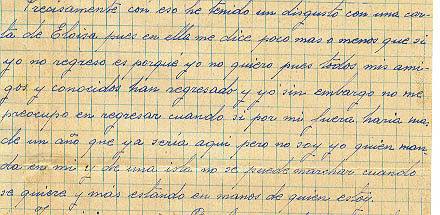 Precisamente con eso he tenido un disgusto con una car-
ta de Eloisa pues en ella me dice poco mas o menos que si
yo no regreso es porque yo no quiero pues todos mis ami-
gos y conocidos han regresado y yo sin embargo no me
preocupo en regresar cuando si por mi fuera haria mas
de un año que ya seria aqui pero no soy yo quien man-
da en mi y de una isla no se puede marchar cuando
se quiere y más estando en manos de quien estoy.